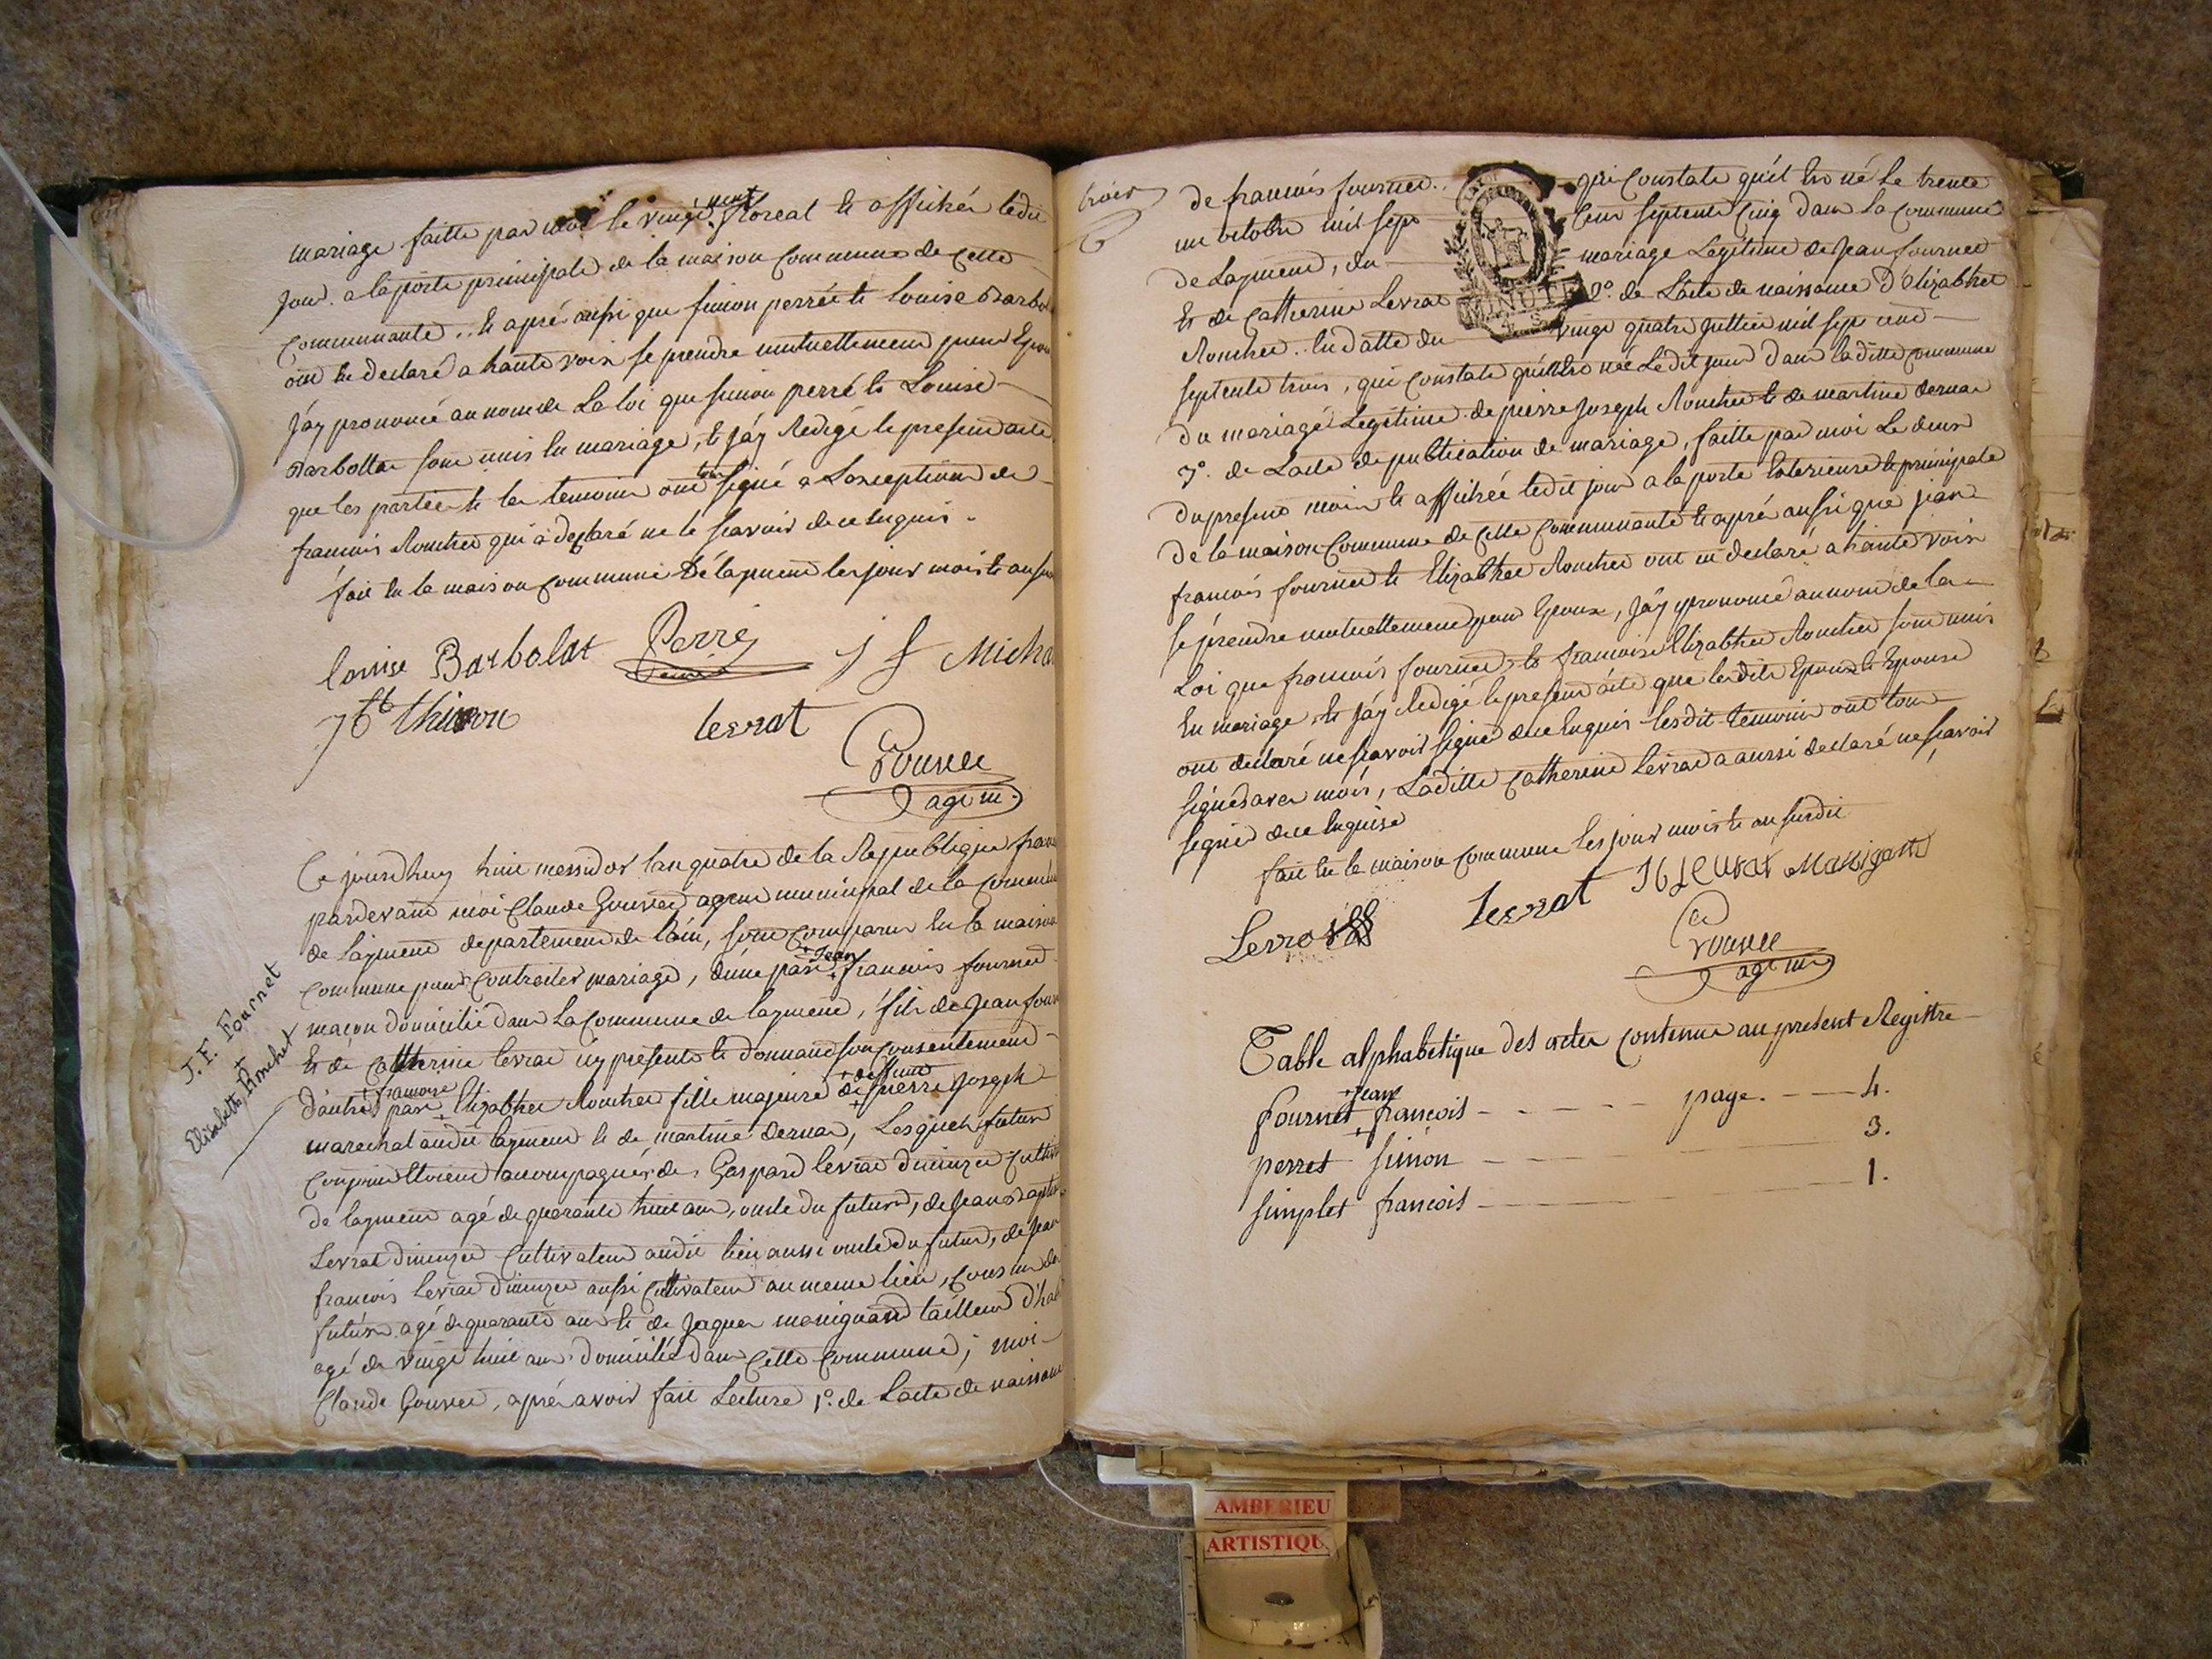 mariage faitte par moi le vingt neuf floreal et affichée ledit
jour a la porte principale de la maison commune de cette
communauté .. et apré aussi que simon perré et louise Barbol
ont eu declaré a haute voix se prendre mutuellement pour Epou
J'ay prononcé au nom de La loi que simon perré et Louise
Barbollat sont unis en mariage, et j'ay Redigé le present acte
que les parties et les temoins ont tous signé a Lexception de
francois Rouchet qui a declaré ne le scavoir de ce enquis.
fait en la maison commune de lagnieu les jour mois et an su
louise Barbolat Perré J f Micha
J Bte thivon levrat
Gouvee
agt m.
Ce jourdhuy huit messidor lan quatre de la Republique fran
pardevant moi Claude Gouvee agent municipal de la commun
de lagnieu departement de lain, sont comparus en la maison
commune pour contracter mariage, dune part + jean francois fournet
macon domicilié dans La commune de lagnieu, fils de jean four
et de catherine levrat icy presente et donnant son consentement
d'autre part + francoise Elizabhet Rouchet fille majeure + deffunt de pierre joseph
marechal audit lagnieu et de martine dernar, Lesquels futurs
conjoints etoient accompagnés de Gaspard levrat dimuzer cultiv
de lagnieu agé de quarante huit ans, oncle du futur, de jean Baptis
Levrat dimuzer cultivateur audit lieu aussi oncle du futur, de jean
francois levrat dimuzer aussi cultivateur au meme lieu, cousin du
futur agé de quarante ans et de jacques monignard tailleur d'hab
agé de vingt huit ans domicilié dans cette commune; moi
Claude Gouvee, apré avoir fait Lecture 1° de Lacte de naissance
J. F. Fournet
et
Elisabeth Rouchet
trois
de francois fournet qui constate qu'il est né le trente
un octobre mil sept cent septente cinq dans la commune
de Lagnieu, du mariage Legitime de jean fournet
et de catherine Levrat 2° de Lacte de naissance d'Elizabhet
MINUTE
Rouchet .. en datte du vingt quatre juillet mil sept cent
septente trois, qui constate qu'elle est née Ledit jour dans laditte commune
du mariage Legitime de pierre joseph Rouchet et de martine dernar
3° de Lacte de publication de mariage, faitte par moi Le deux
du present mois et affichée ledit jour a la porte Exterieure et principale
de la maison commune de cette communauté et apré aussi que jean
francois fournet et Elizabhet Rouchet ont eu declaré a haute voix
se prendre mutuellement pour Epoux, J'ay prononcé au nom de la
Loi que francois fournet, et francoise Elizabhet Rouchet sont unis
En mariage, et j'ay Redigé le present acte que lesdits Epoux et Epouse
ont declaré ne scavoir signer de ce Enquis lesdit temoins ont tous
signés avec moi, Laditte catherine levrat a aussi declaré ne scavoir
signer de ce Enquise
fait en la maison commune les jour mois et an susdit
Levrat levrat Manigand
Gouvee
agt m.
Table alphabetique des actes contenus au present Registre
Fournet + jean françois - - - - - - page. - - - 4.
perret simon - - - 3.
simplet françois - - - 1.
AMBERIEU
ARTISTIQU